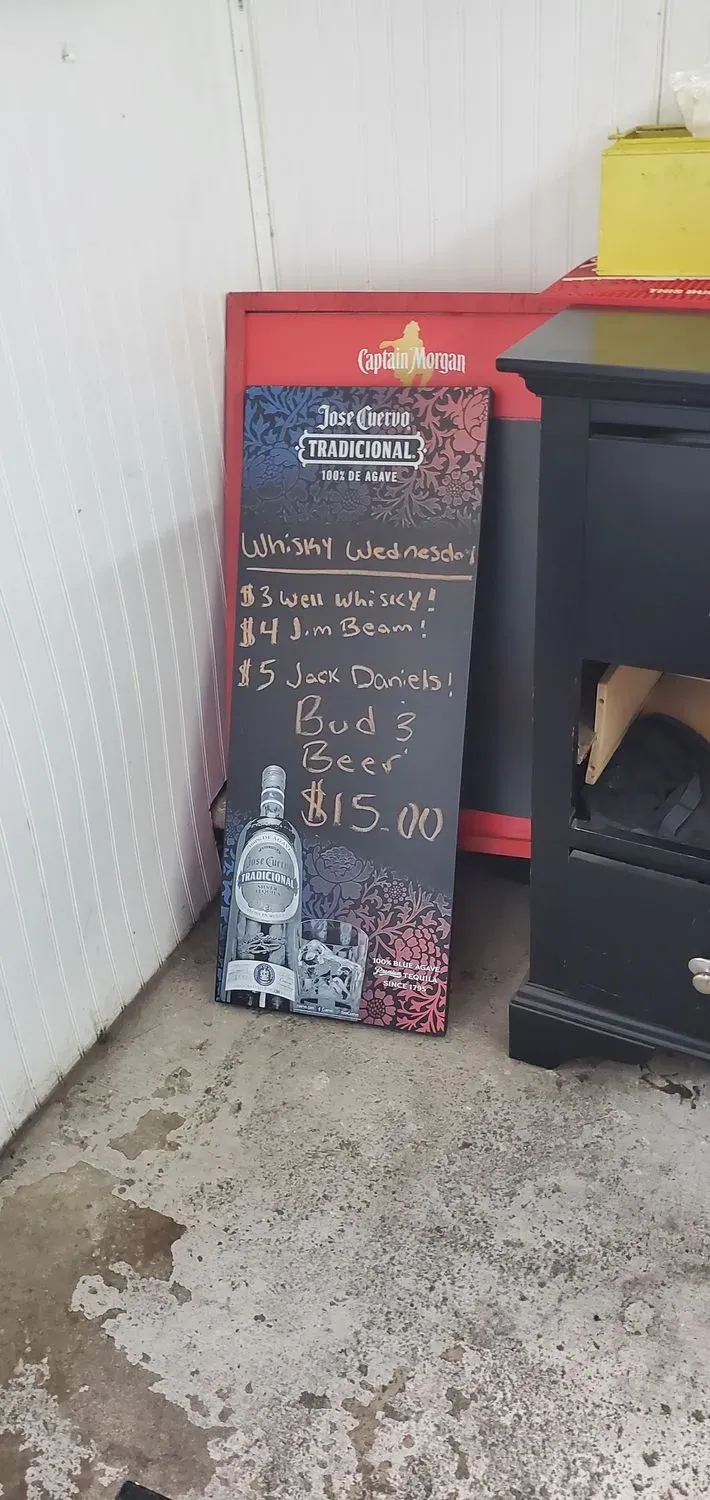 THIS BU
Captain Morgan
Jose Cuervo
TRADICIONAL.
100% DE AGAVE
Whisky Wednesday
$3 Well Whisky!
$4 Jim Beam!
$5 Jack Daniels!
Bud 3
Beer
$15.00
Jose Cuervo
TRADICIONAL
SILVER
TEQUILA
100% BLUE AGAVE
Premium TEQUILA
SINCE 1795